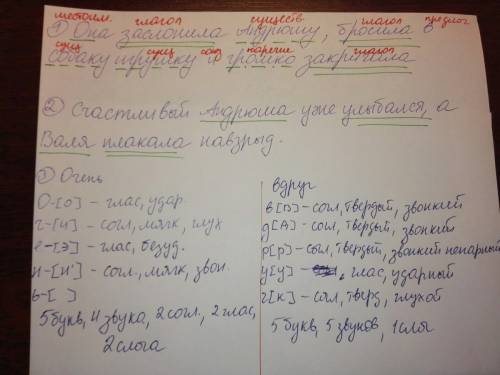 местоим. глагол существ. глагол предлог
① Она заслонила Андрюшу, бросила в
сущ сущ союз наречие глагол
собаку игрушку и громко закричала
② Счастливый Андрюша уже улыбался, а
Валя плакала навзрыд.
③ Очень
О-[о] – глас, удар
ч-[ч] – согл, мягк, глух
е-[э] – глас, безуд.
н-[н'] – согл., мягк, звон.
ь-[ ]
5 букв, 4 звука, 2 согл., 2 глас,
2 слога
вдруг
в[в]-согл, твердый, звонкий
д[д]-согл, твердый, звонкий
р[р]-согл, твердый, звонкий непарный
у[у]- глас, ударный
г[к]- согл, тверд, глухой
5 букв, 5 звуков, 1 слог